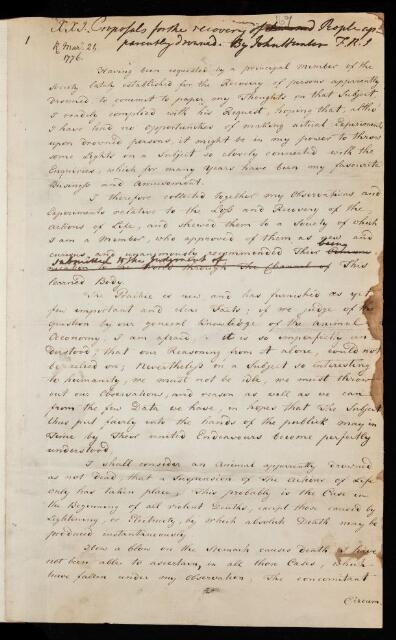 XXI. Proposals for the recovery of People ap-
parently drowned. By John Hunter F.R.S
1
R. Mar. 21,
1776.
Having been requested by a principal member of the
Society lately established for the Recovery of persons apparently
drowned to commit to paper my Thoughts on that Subject
I readily complied with his Request, hoping that, altho'
I have had no opportunities of making actual Experiments
upon drowned persons, it might be in my power to throw
some Lights on a Subject so closely connected with the
Enquiries, which for many Years have been my favourite
Business and Amusement.
I therefore collected together my Observations and
Experiments relative to the Loss and Recovery of the
Actions of Life, and shewed them to a Society of which
I am a Member, who approved of them as new and
curious and unanimously recommended their being
submitted to the Judgment of
through The Channel of This
learned Body.
The Practice is new, and has furnished as yet
few important and clear Facts; if we judge of the
question by our general Knowledge of the Animal
Oeconomy, I am afraid, it is so imperfectly un
derstood, that our Reasoning from it alone, could not
be relied on; Nevertheless on a Subject so interesting
to humanity, we must not be idle, we must throw
out our Observations, and reason as well as we can
from the few Data we have, in hopes that The Subject
thus put fairly into the hands of the publick may in
Time by Their united Endeavours become perfectly
understood.
I shall consider an Animal apparently drowned
as not dead, that a Suspension of The Actions of Life
only has taken place; This probably is the Case in
the Beginning of all violent Deaths, except those caused by
Lightning, or Electricity, by which absolute Death may be
produced instantaneously.
How a blow on the Stomach causes death I have
not been able to ascertain, in all those Cases, which
have fallen under my Observation, The concomitant
Circum.